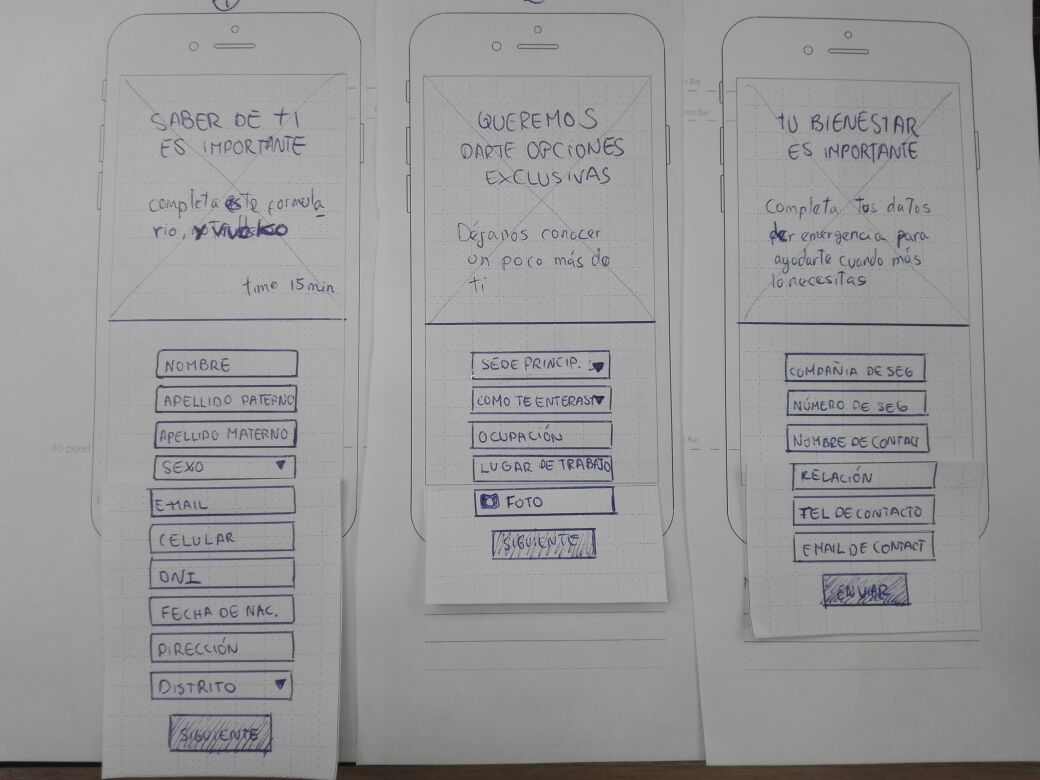 1
SABER DE TI
ES IMPORTANTE
completa este formula
rio,
time 15 min
NOMBRE
APELLIDO PATERNO
APELLIDO MATERNO
SEXO
E-MAIL
CELULAR
DNI
FECHA DE NAC.
DIRECCIÓN
DISTRITO
SIGUIENTE
40 pixel
QUEREMOS
DARTE OPCIONES
EXCLUSIVAS
Déjanos conocer
un poco más de
ti
SEDE PRINCIP.
COMO TE ENTERAST
OCUPACIÓN
LUGAR DE TRABAJO
FOTO
SIGUIENTE
Bar
Bar
Bar
TU BIENESTAR
ES IMPORTANTE
Completa tus datos
der emergencia para
ayudarte cuando más
lo necesitas
COMPAÑIA DE SEG
NÚMERO DE SEG
NOMBRE DE CONTACT
RELACIÓN
TEL DE CONTACTO
EMAIL DE CONTACT
ENVIAR